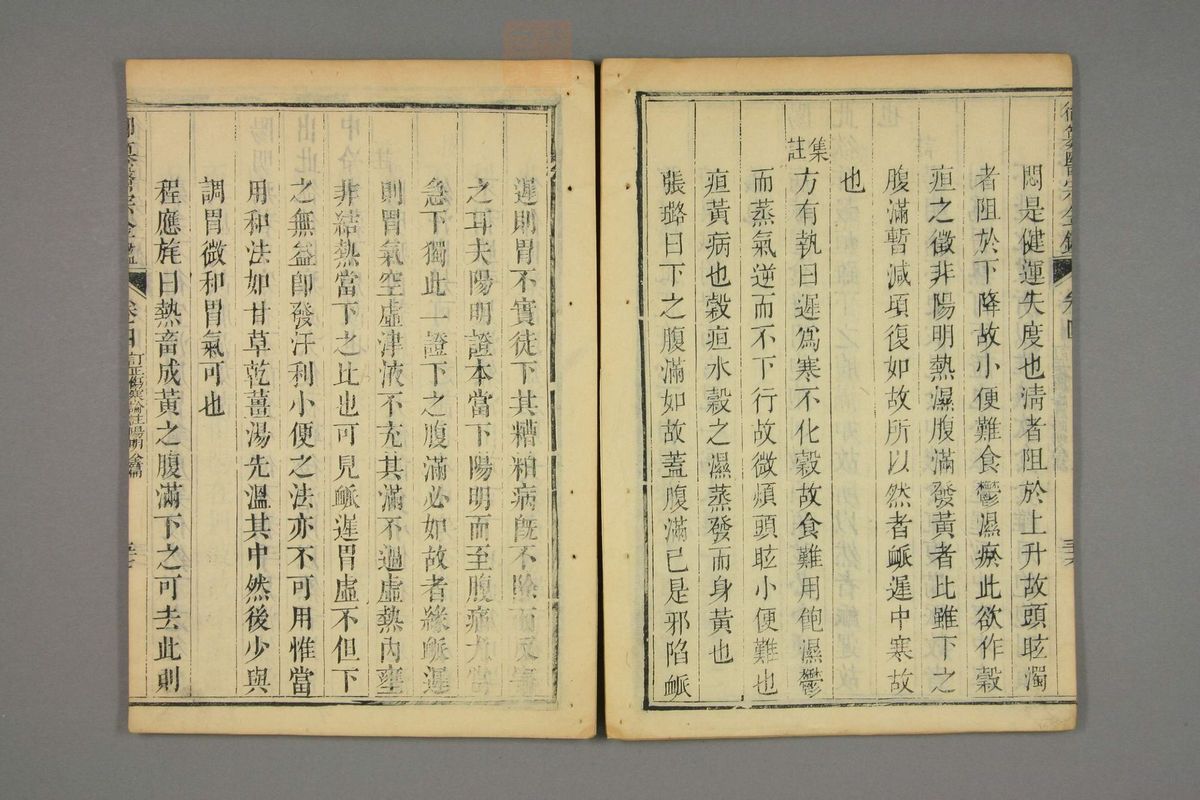 悶是健運失度也清者阻於上升故頭眩濁
者阻於下降故小便難食鬱濕瘀此欲作穀
疸之徵非陽明熱濕腹滿發黃者比雖下之
腹滿暫減頃復如故所以然者脈遲中寒故
也
集註方有執曰遲爲寒不化穀故食難用飽濕鬱
而蒸氣逆而不下行故微煩頭眩小便難也
疸黃病也穀疸水穀之濕蒸發而身黃也
張璐曰下之腹滿如故蓋腹滿已是邪陷脈
遲則胃不實徒下其糟粕病旣不除而反害
之耳夫陽明證本當下陽明而至腹痛尤當
急下獨此一證下之腹滿必如故者緣脈遲
則胃氣空虛津液不充其滿不過虛熱內壅
非結熱當下之比也可見脈遲胃虛不但下
之無益卽發汗利小便之法亦不可用惟當
用和法如甘草乾薑湯先溫其中然後少與
調胃微和胃氣可也
程應旄曰熱畜成黃之腹滿下之可去此則
醫宗金鑑 卷四 訂正傷寒論註陽明全篇